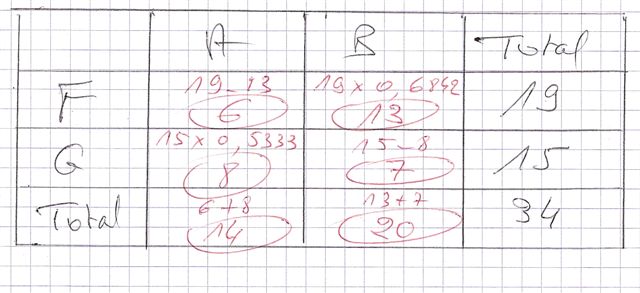 A B Total
F 19-13 19 x 0,6842 19
6 13
G 15 x 0,5333 15-8 15
8 7
Total 6+8 13+7 34
14 20